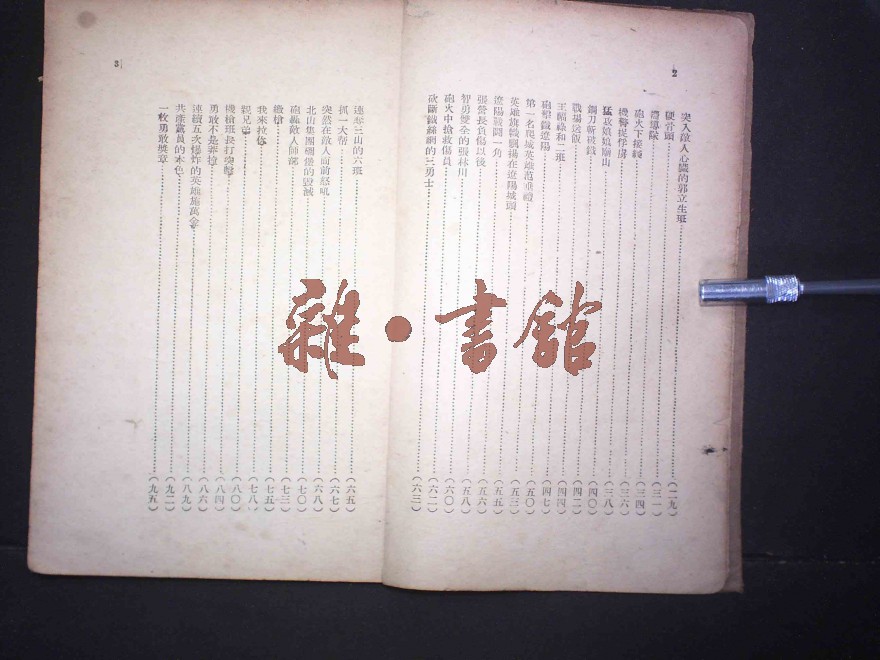 2
突入敵人心臟的郭立生班……(二九)
硬骨頭……(三一)
砲火下接線……(三四)
機警捉俘虜……(三六)
猛攻娘娘廟山……(三八)
鋼刀斬破鐵……(四〇)
戰場送飯……(四二)
王福祿和二班……(四四)
砲擊鐵遼陽……(四七)
第一名爬城英雄范垂禮……(五〇)
英雄旗幟飄揚在遼陽城頭……(五三)
遼陽戰鬪一角……(五五)
張營長負傷以後……(五六)
智勇雙全的張林川……(五八)
砲火中搶救傷員……(六〇)
砍斷鐵絲網的三勇士……(六三)
3
連奪三山的六班……(六五)
抓一大幫……(六七)
突然在敵人面前怒吼……(六八)
北山集團碉堡的毀滅……(七〇)
砲轟敵人師部……(七三)
機槍……(七五)
我來拉你……(七八)
親兄弟……(八〇)
機槍班長打突擊……(八四)
勇敢不是莽撞……(八六)
連續五次爆炸的英雄施萬金……(八九)
共產黨員的本色……(九二)
一枚勇敢獎章……(九五)
雜·書館